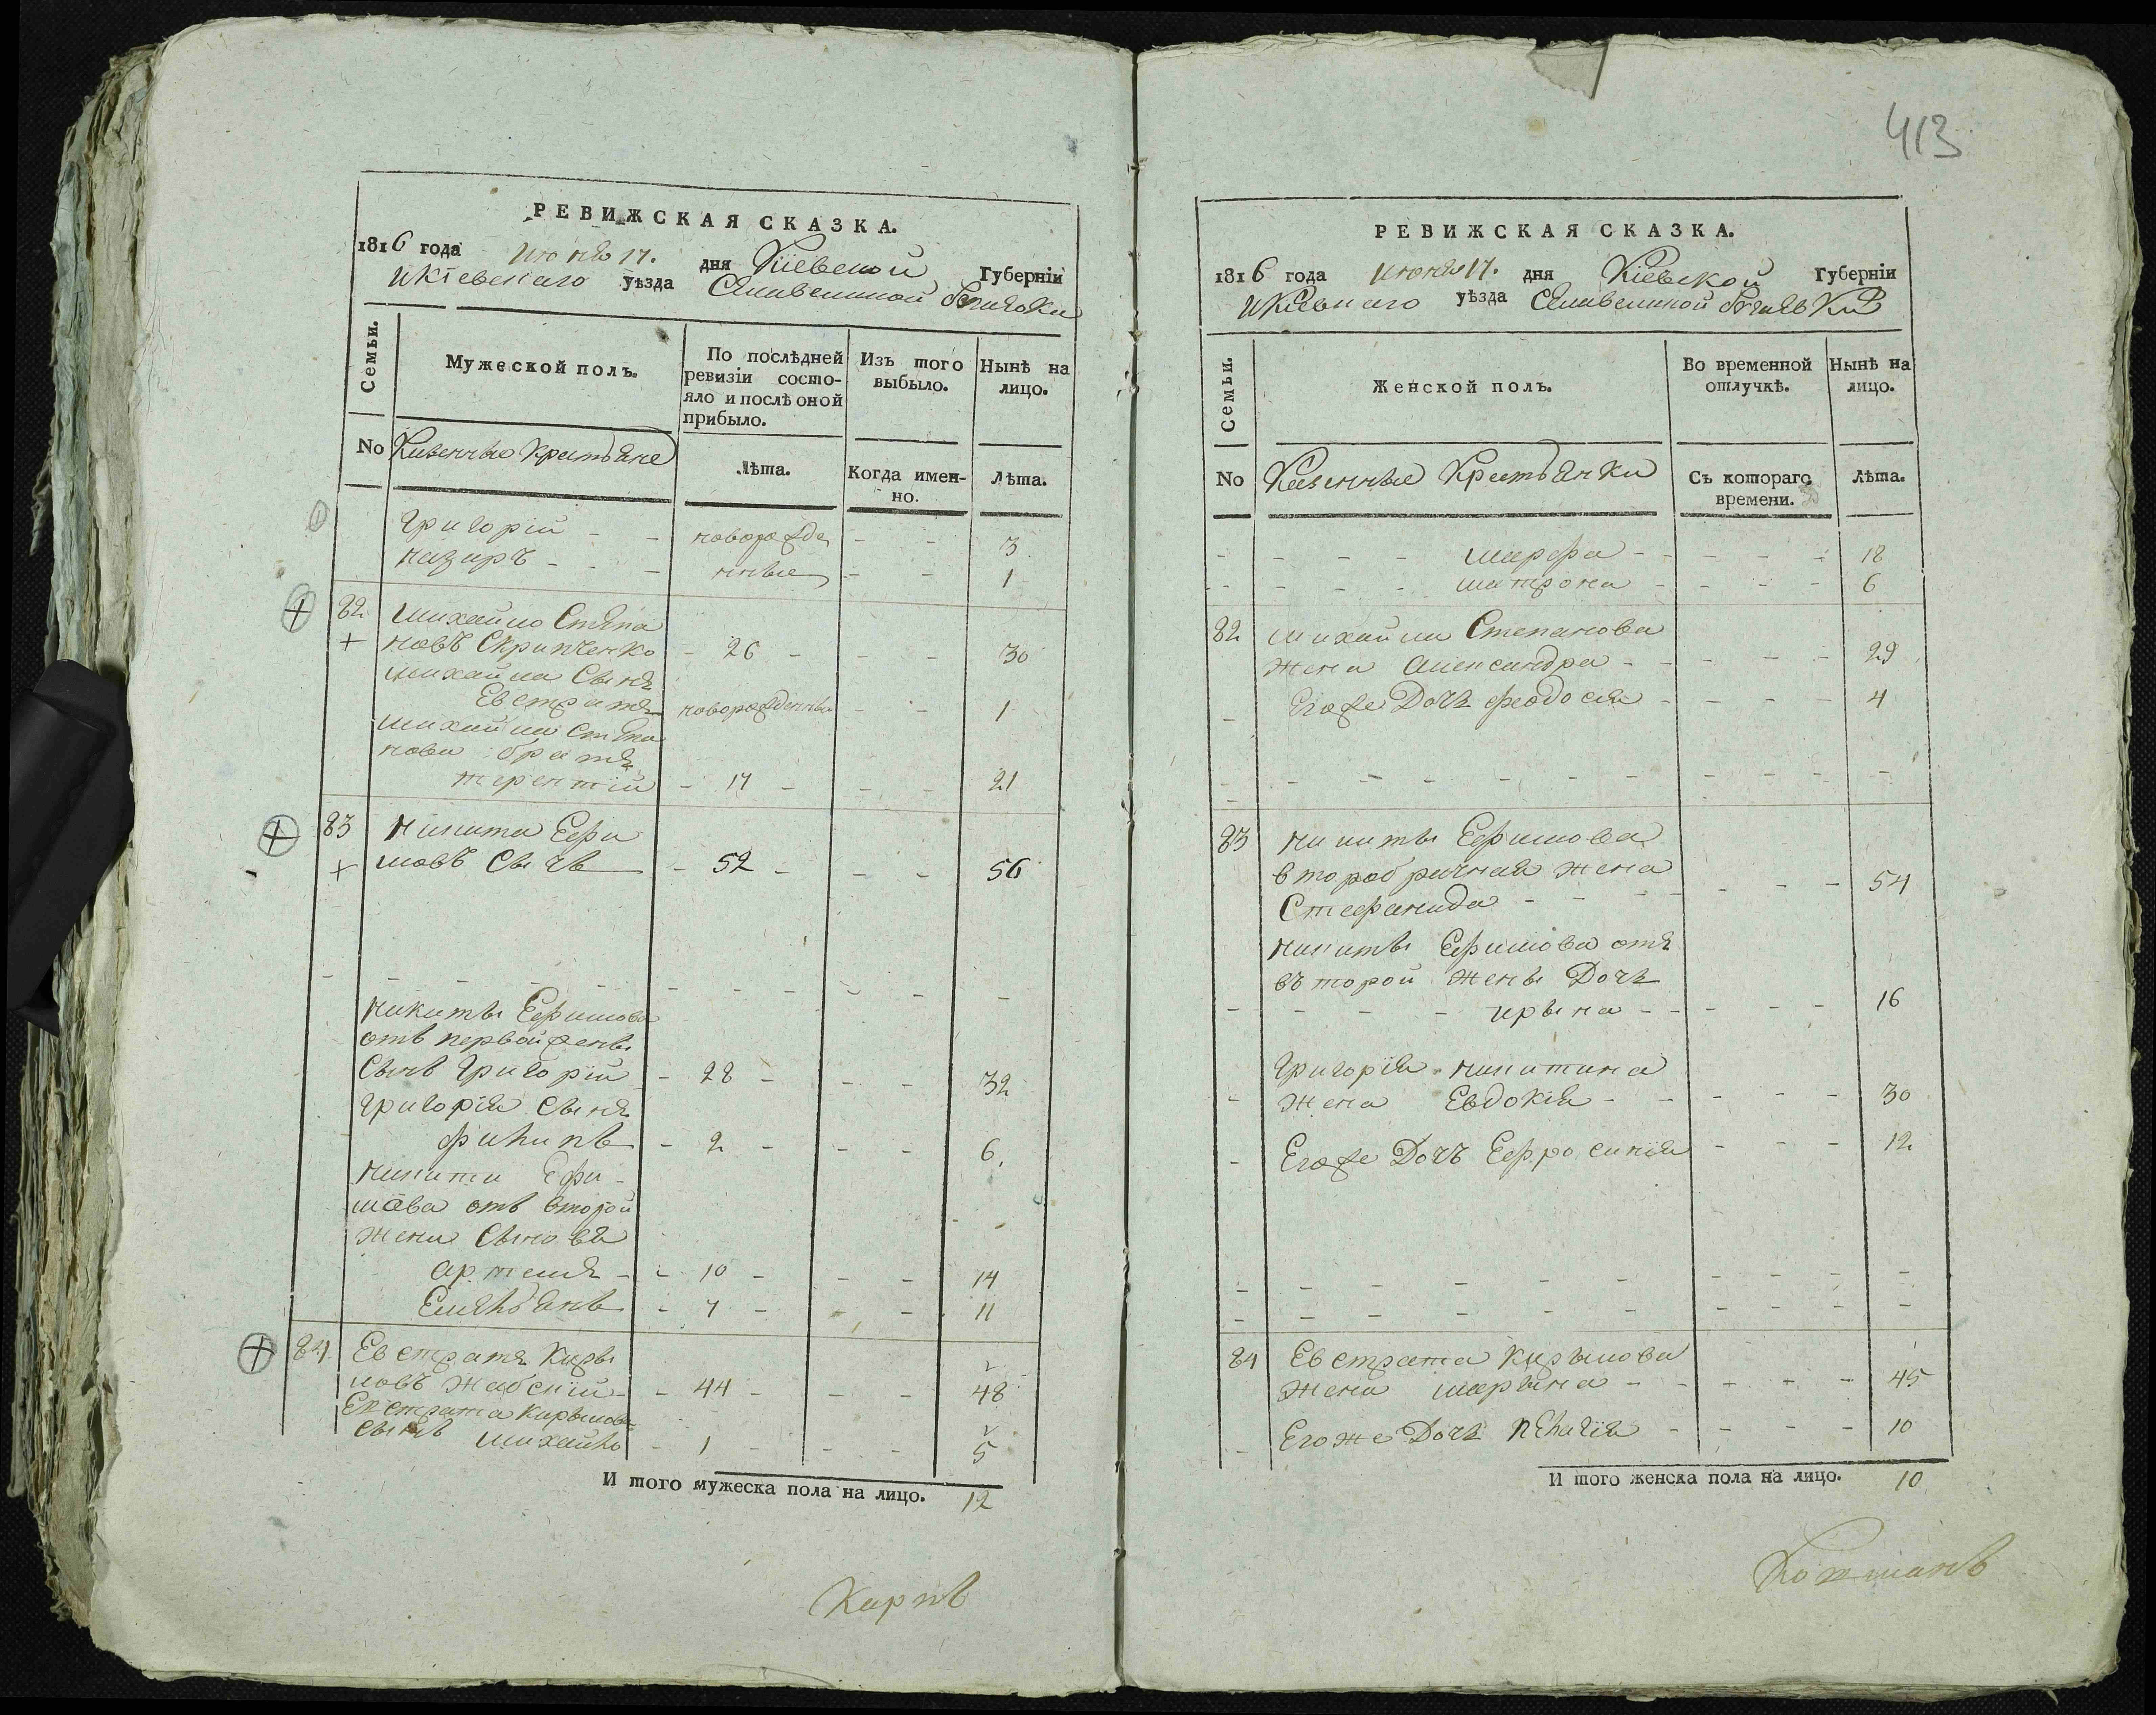 РЕВИЖСКАЯ СКАЗКА.
1816 года июня 17. дня Кіевской Губерніи
и Кіевскаго уѣзда
Семьи.
Мужеской полъ.
По послѣдней ревизіи состояло и послѣ оной прибыло.
Изъ того выбыло.
Нынѣ на лицо.
No Казенные Крестьяне
Лѣта.
Когда именно.
Лѣта.
Григорій - - новорожде - - 3
Назаръ - - - нные - - 1
82 Михайло Степа
новъ Скрипченко - 26 - - - 30
Михайла Сынъ
Евстратъ новорожденный - - 1
Михайла Степа
нова братъ
Терентій - 17 - - - 21
83 Никита Ефи
мовъ Сычъ - 52 - - - 56
Никиты Ефимова
отъ первой жены
Сынъ Григорій - 28 - - - 32
Григорія Сынъ
Филипъ - 2 - - - 6.
Никити Ефи-
мова отъ второй
жени Сыновя
Артемъ - - 10 - - - 14
Емельянъ - 7 - - - 11
84 Евстратъ Киры
ловъ Жабскій - - 44 - - - 48
Евстрата Кирылова
сынъ Михайло - 1 - - - 5
И того мужеска пола на лицо. 12
Карпъ
413
РЕВИЖСКАЯ СКАЗКА.
1816 года июня 17. дня Кіевской Губерніи
и Кіевскаго уѣзда
Семьи.
Женской полъ.
Во временной отлучкѣ.
Нынѣ на лицо.
No Казенные Крестьянки
Съ котораго времени.
Лѣта.
- - - - Марфа - - - - - 18
- - - - Матрона - - - - 6
82 Михайла Степанова
жена Александра - - - - - 29
- Егоже Дочь Феодосия - - - - 4
83 Никиты Ефимова
второбрачная жена - - - 54
Стефанида - - - -
Никиты Ефимова отъ
въторой жены Дочь
- - - - Ирына - - - - - 16
Григорія Никитина
- жена Евдокія - - - - - 30
- Егоже Дочъ Ефросинія - - - 12
84 Евстрата Кирылова
жена Марына - - - - - 45
- Егоже Дочь Пелагія - - - 10
И того женска пола на лицо. 10